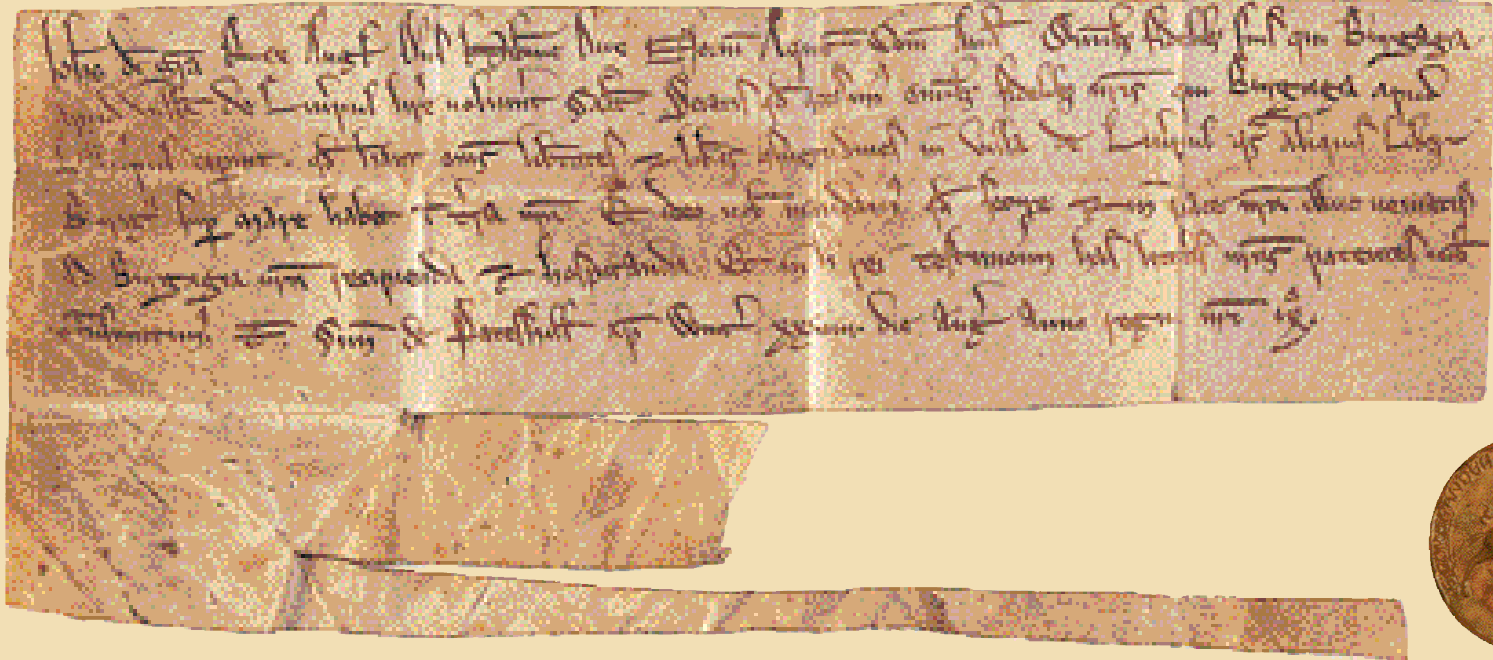 Johs di gra Rex Angl Dns hybnie Dux Norm Aquit Com And Omib fidelib suis qui Burgagia
apud villam de Liverpul hre voluint Salt Sciatis qd concess omib fidelib nris qui Burgagia apud
Liverpul cepint qd hant oms libtates et libas consuetudines in villa de Liverpul qs aliquis Liber
Burgus sup mare habet in terra nra Et ideo vob mandam qd secure et in pace nra illuc veniatis
ad Burgagia nra recipienda et hospitanda Et in hui rei testimonium has litts nras patentes vob
transmittim T Sim de Pateshill ap xxviii die Aug Anno regni nri ix